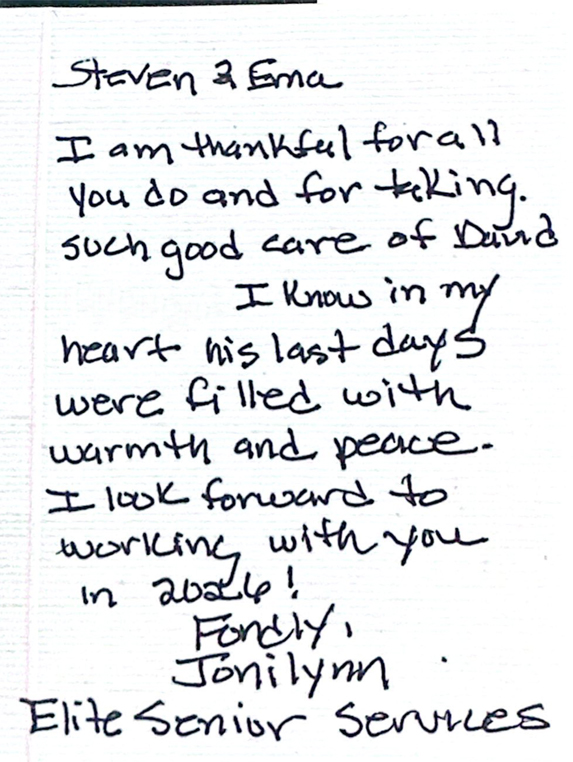 Steven & Ema
I am thankful for all
you do and for taking.
such good care of David
I know in my
heart his last days
were filled with
warmth and peace.
I look forward to
working with you
in 2026!
Fondly,
Jonilynn
Elite Senior Services